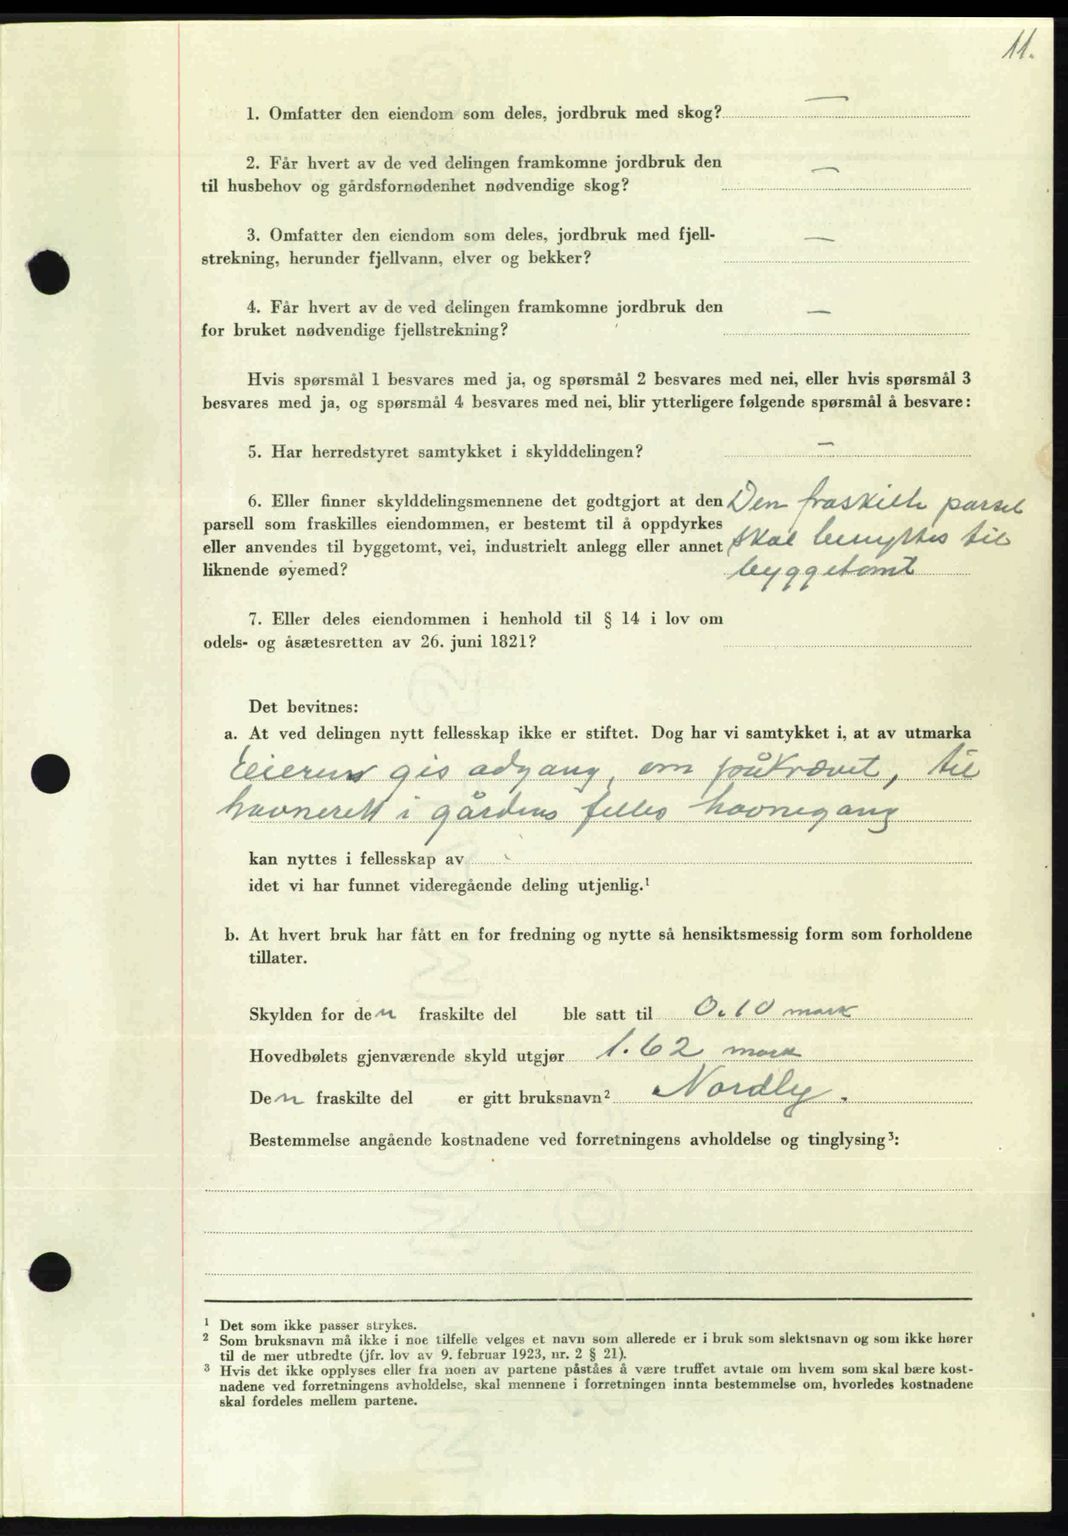 11.
1. Omfatter den eiendom som deles, jordbruk med skog? —
2. Får hvert av de ved delingen framkomne jordbruk den
til husbehov og gårdsfornødenhet nødvendige skog? —
3. Omfatter den eiendom som deles, jordbruk med fjell-
strekning, herunder fjellvann, elver og bekker? —
4. Får hvert av de ved delingen framkomne jordbruk den
for bruket nødvendige fjellstrekning? —
Hvis spørsmål 1 besvares med ja, og spørsmål 2 besvares med nei, eller hvis spørsmål 3
besvares med ja, og spørsmål 4 besvares med nei, blir ytterligere følgende spørsmål å besvare:
5. Har herredstyret samtykket i skylddelingen? —
6. Eller finner skylddelingsmennene det godtgjort at den
parsell som fraskilles eiendommen, er bestemt til å oppdyrkes
eller anvendes til byggetomt, vei, industrielt anlegg eller annet
liknende øyemed?
Den fraskilte parsel
skal benyttes til
byggetomt
7. Eller deles eiendommen i henhold til § 14 i lov om
odels- og åsætesretten av 26. juni 1821?
Det bevitnes:
a. At ved delingen nytt fellesskap ikke er stiftet. Dog har vi samtykket i, at av utmarka
Eieren gis adgang, om påkrævet, til
havnerett i gårdens felles havnegang
kan nyttes i fellesskap av
idet vi har funnet videregående deling utjenlig.¹
b. At hvert bruk har fått en for fredning og nytte så hensiktsmessig form som forholdene
tillater.
Skylden for den fraskilte del ble satt til 0.10 mark
Hovedbølets gjenværende skyld utgjør 1.62 mark
Den fraskilte del er gitt bruksnavn² Nordly.
Bestemmelse angående kostnadene ved forretningens avholdelse og tinglysing³:
¹ Det som ikke passer strykes.
² Som bruksnavn må ikke i noe tilfelle velges et navn som allerede er i bruk som slektsnavn og som ikke hører
til de mer utbredte (jfr. lov av 9. februar 1923, nr. 2 § 21).
³ Hvis det ikke opplyses eller fra noen av partene påståes å være truffet avtale om hvem som skal bære kost-
nadene ved forretningens avholdelse, skal mennene i forretningen innta bestemmelse om, hvorledes kostnadene
skal fordeles mellem partene.